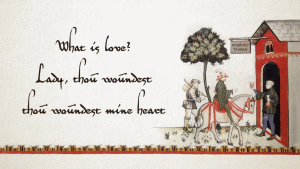 What is love?
Lady, thou woundest
thou woundest mine heart